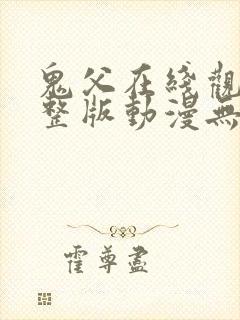 鬼父在綫觀
整版動漫無
霍尊盡